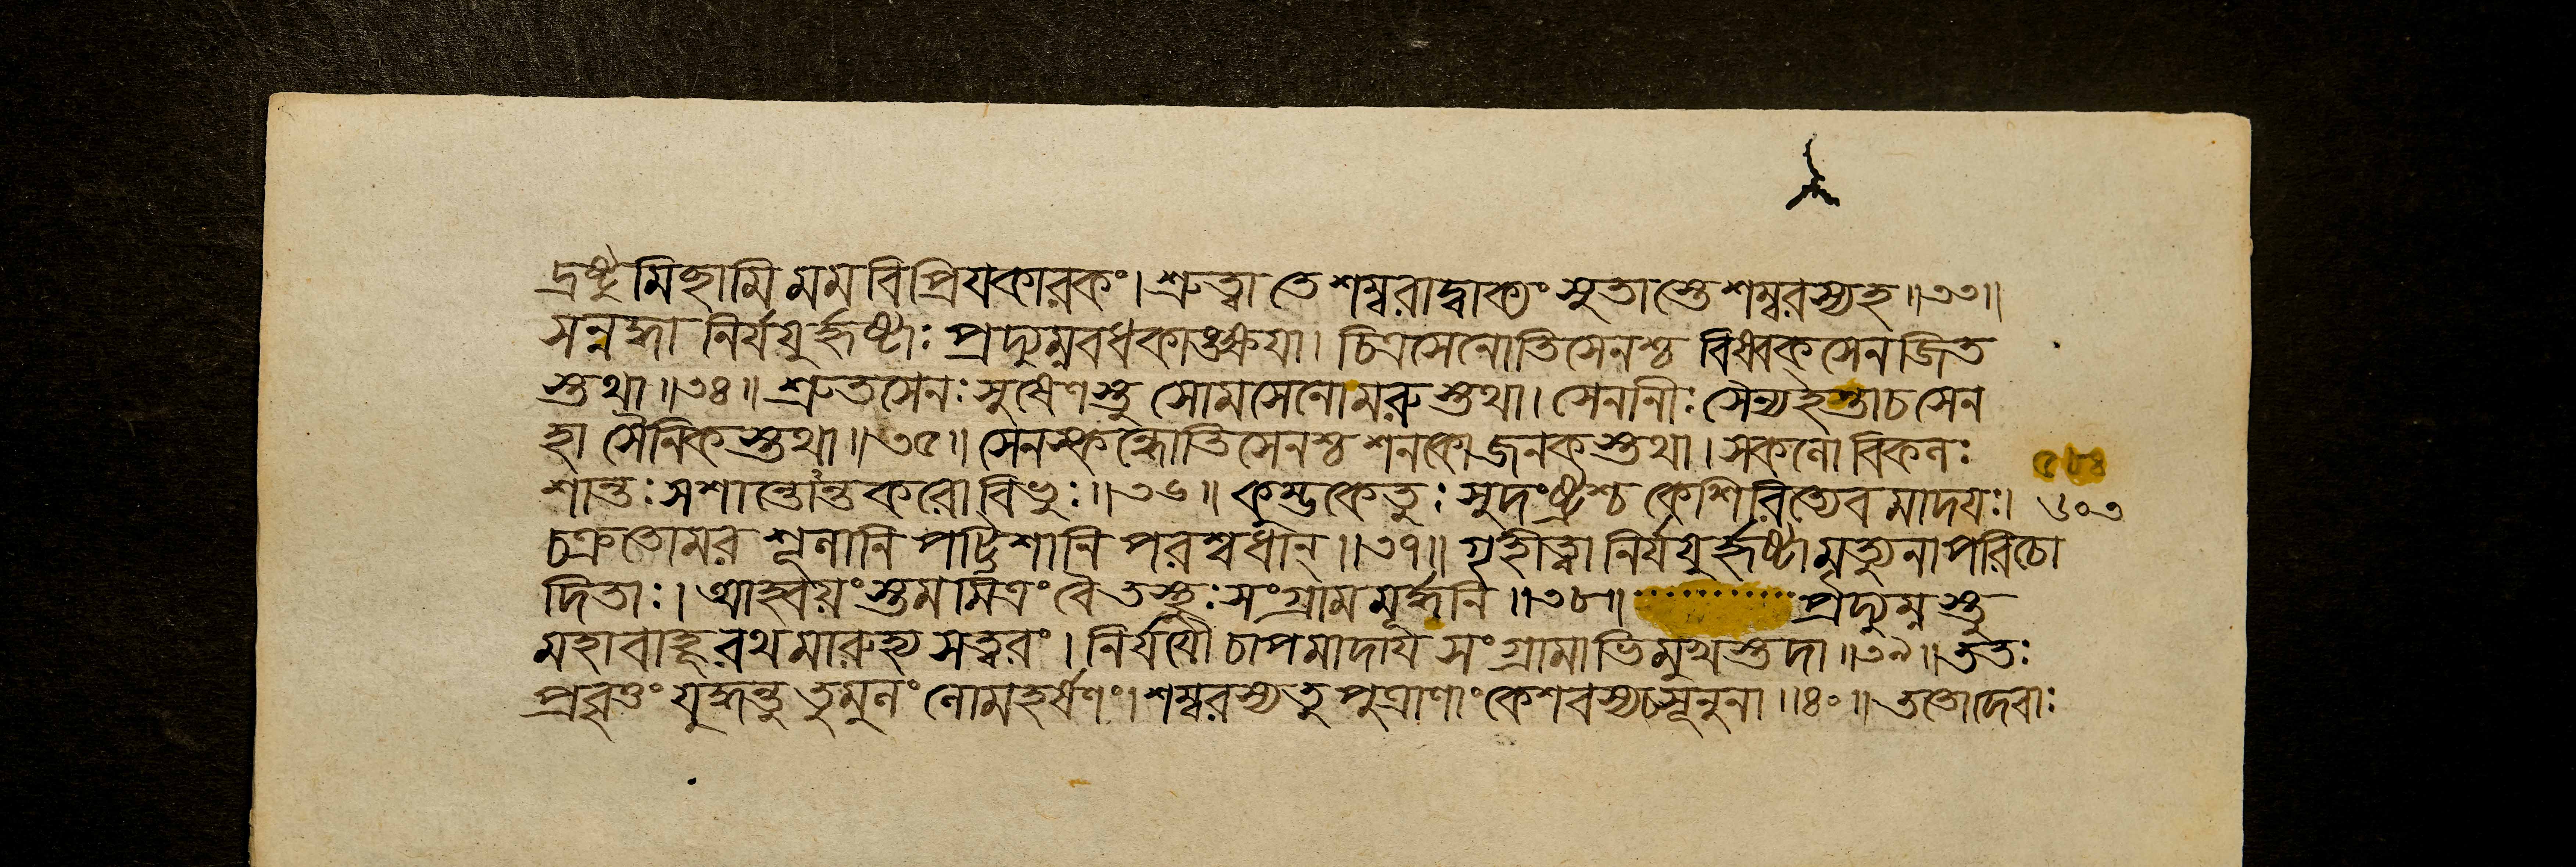 দ্রষ্টুমিহামি মম বিপ্রিযকারকং। শ্রুত্বা তে শম্বরাদ্বাক্যং সুতাস্তে শম্বরস্যহ॥৩৩॥
সন্নদ্ধা নির্যযুর্হৃষ্টাঃ প্রদ্যুম্নবধকাঙ্ক্ষযা। চিত্রসেনোতিসেনশ্চ বিষ্বক্সেনজিত
স্তথা॥৩৪॥ শ্রুতসেনঃ সুষেণস্তু সোমসেনোমরুস্তথা। সেননীঃ সৈন্যহন্তাচ সেন
হা সৈনিকস্তথা॥৩৫॥ সেনস্কন্ধোতিসেনশ্চ শনকো জনকস্তথা। সকলো বিকলঃ
শান্তঃ সশান্তোন্তকরো বিভুঃ॥৩৬॥ কুম্ভকেতুঃ সুদংষ্ট্রশ্চ কেশিরিত্যেবমাদযঃ।
৬০৩
চক্রতোমর শূলানি পট্টিশানি পরশ্বধান্॥৩৭॥ গৃহীত্বা নির্যযুর্হৃষ্টামৃত্যুনাপরিচো
দিতাঃ। আহ্বয়ংস্তমমিত্রং বৈ তস্থুঃ সংগ্রামমূর্দ্ধনি॥৩৮॥ প্রদ্যুম্নস্তু
মহাবাহূরথমারুহ্য সত্বরং। নির্যযৌ চাপমাদায সংগ্রামাভিমুখস্তদা॥৩৯॥ ততঃ
প্রবৃত্তং যুদ্ধন্তু তুমুলং লোমহর্ষণং। শম্বরস্য তু পুত্রাণাং কেশবস্যচসূনুনা॥৪০॥ ততোদেবাঃ